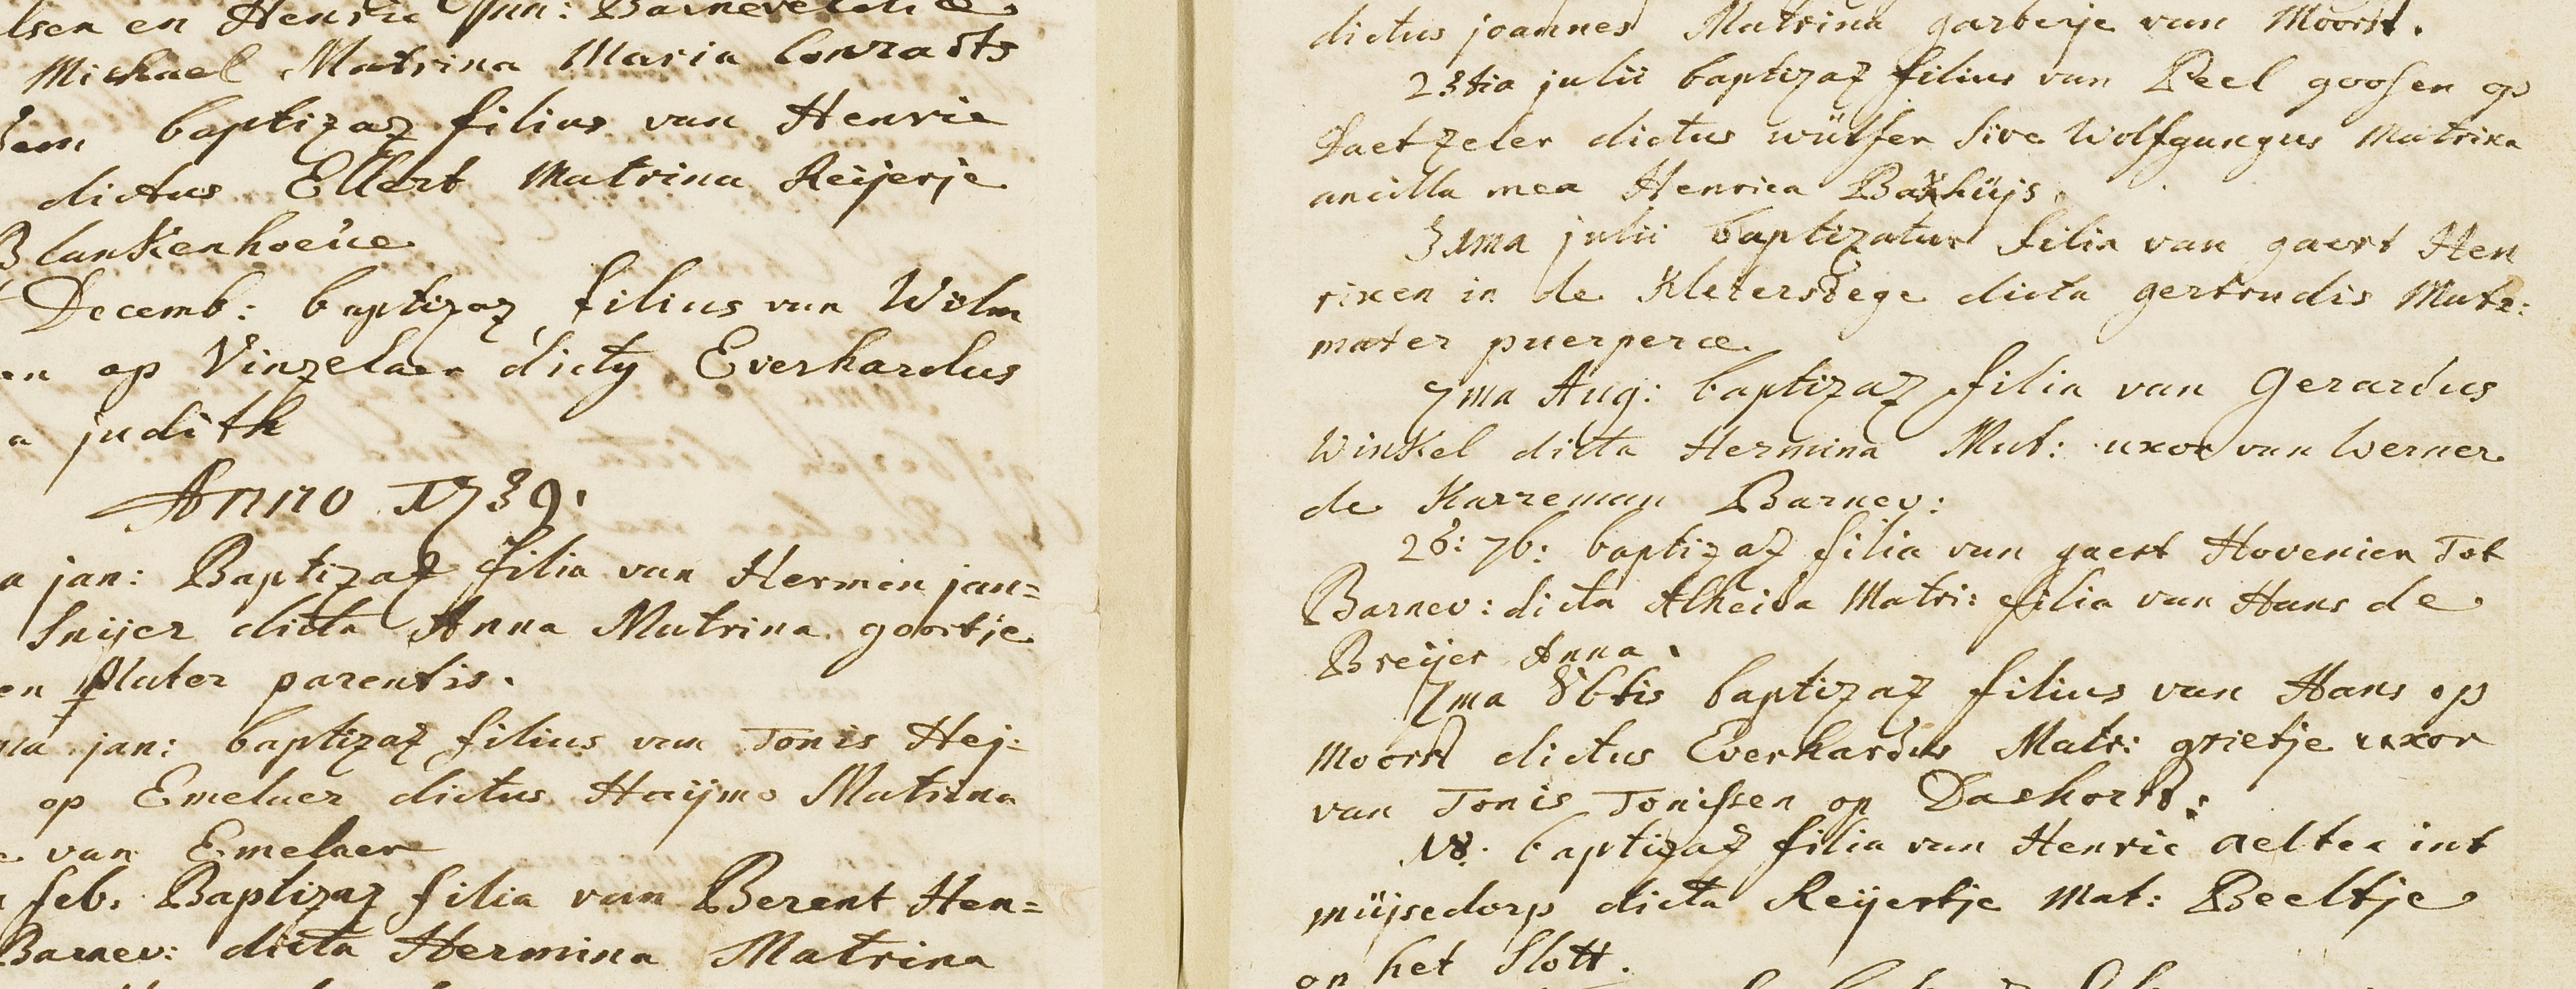 lsen en Henric Jan: Barneveldiæ
Michael Matrina Maria Conradts
baptizaz filius van Henric
dictus Ellert Matrina Reijerje
Blankenhoeve
Decemb: baptizaz filius van Wilm
en op Vinzelaer dictus Everhardus
a judith
Anno 1739.
a jan: Baptizaz filia van Hermen jan=
Snijer dicta Anna Matrina goortje
en Mater parentis.
ma jan: baptizaz filius van Tonis Hej:
op Emelaer dictus Haijmo Matrina
e van Emelaer
feb. Baptizaz filia van Berent Hen=
Barnev: dicta Hermina Matrina
dictus joannes Matrina garbetje van Moorst.
23tia julii baptizaz filius van Peel goosen op
Daetzeler dictus wülfer sive Wolfgangus Matrina
ancilla mea Henrica Bakhüijs.
31ma julii baptizatur filia van gaert Hen
rixen in de Kleterstege dicta gertrudis Matr:
mater puerperæ
7ma Aug: baptizaz filia van Gerardus
Winkel dicta Hermina Mat: uxor van Werner
de Karreman Barnev:
26: 7b: baptizaz filia van gaert Hovenier Tot
Barnev: dicta Alheida Matri: filia van Hans de
Breijer Anna.
7ma 8btis baptizaz filius van Hans op
Moorst dictus Everhardus Matr: grietje uxor
van Tonis Tonissen op Dashorst.
18. baptizaz filia van Henric aelten int
müijsedorp dicta Reijertje Mat: Beeltje
op het Slott.